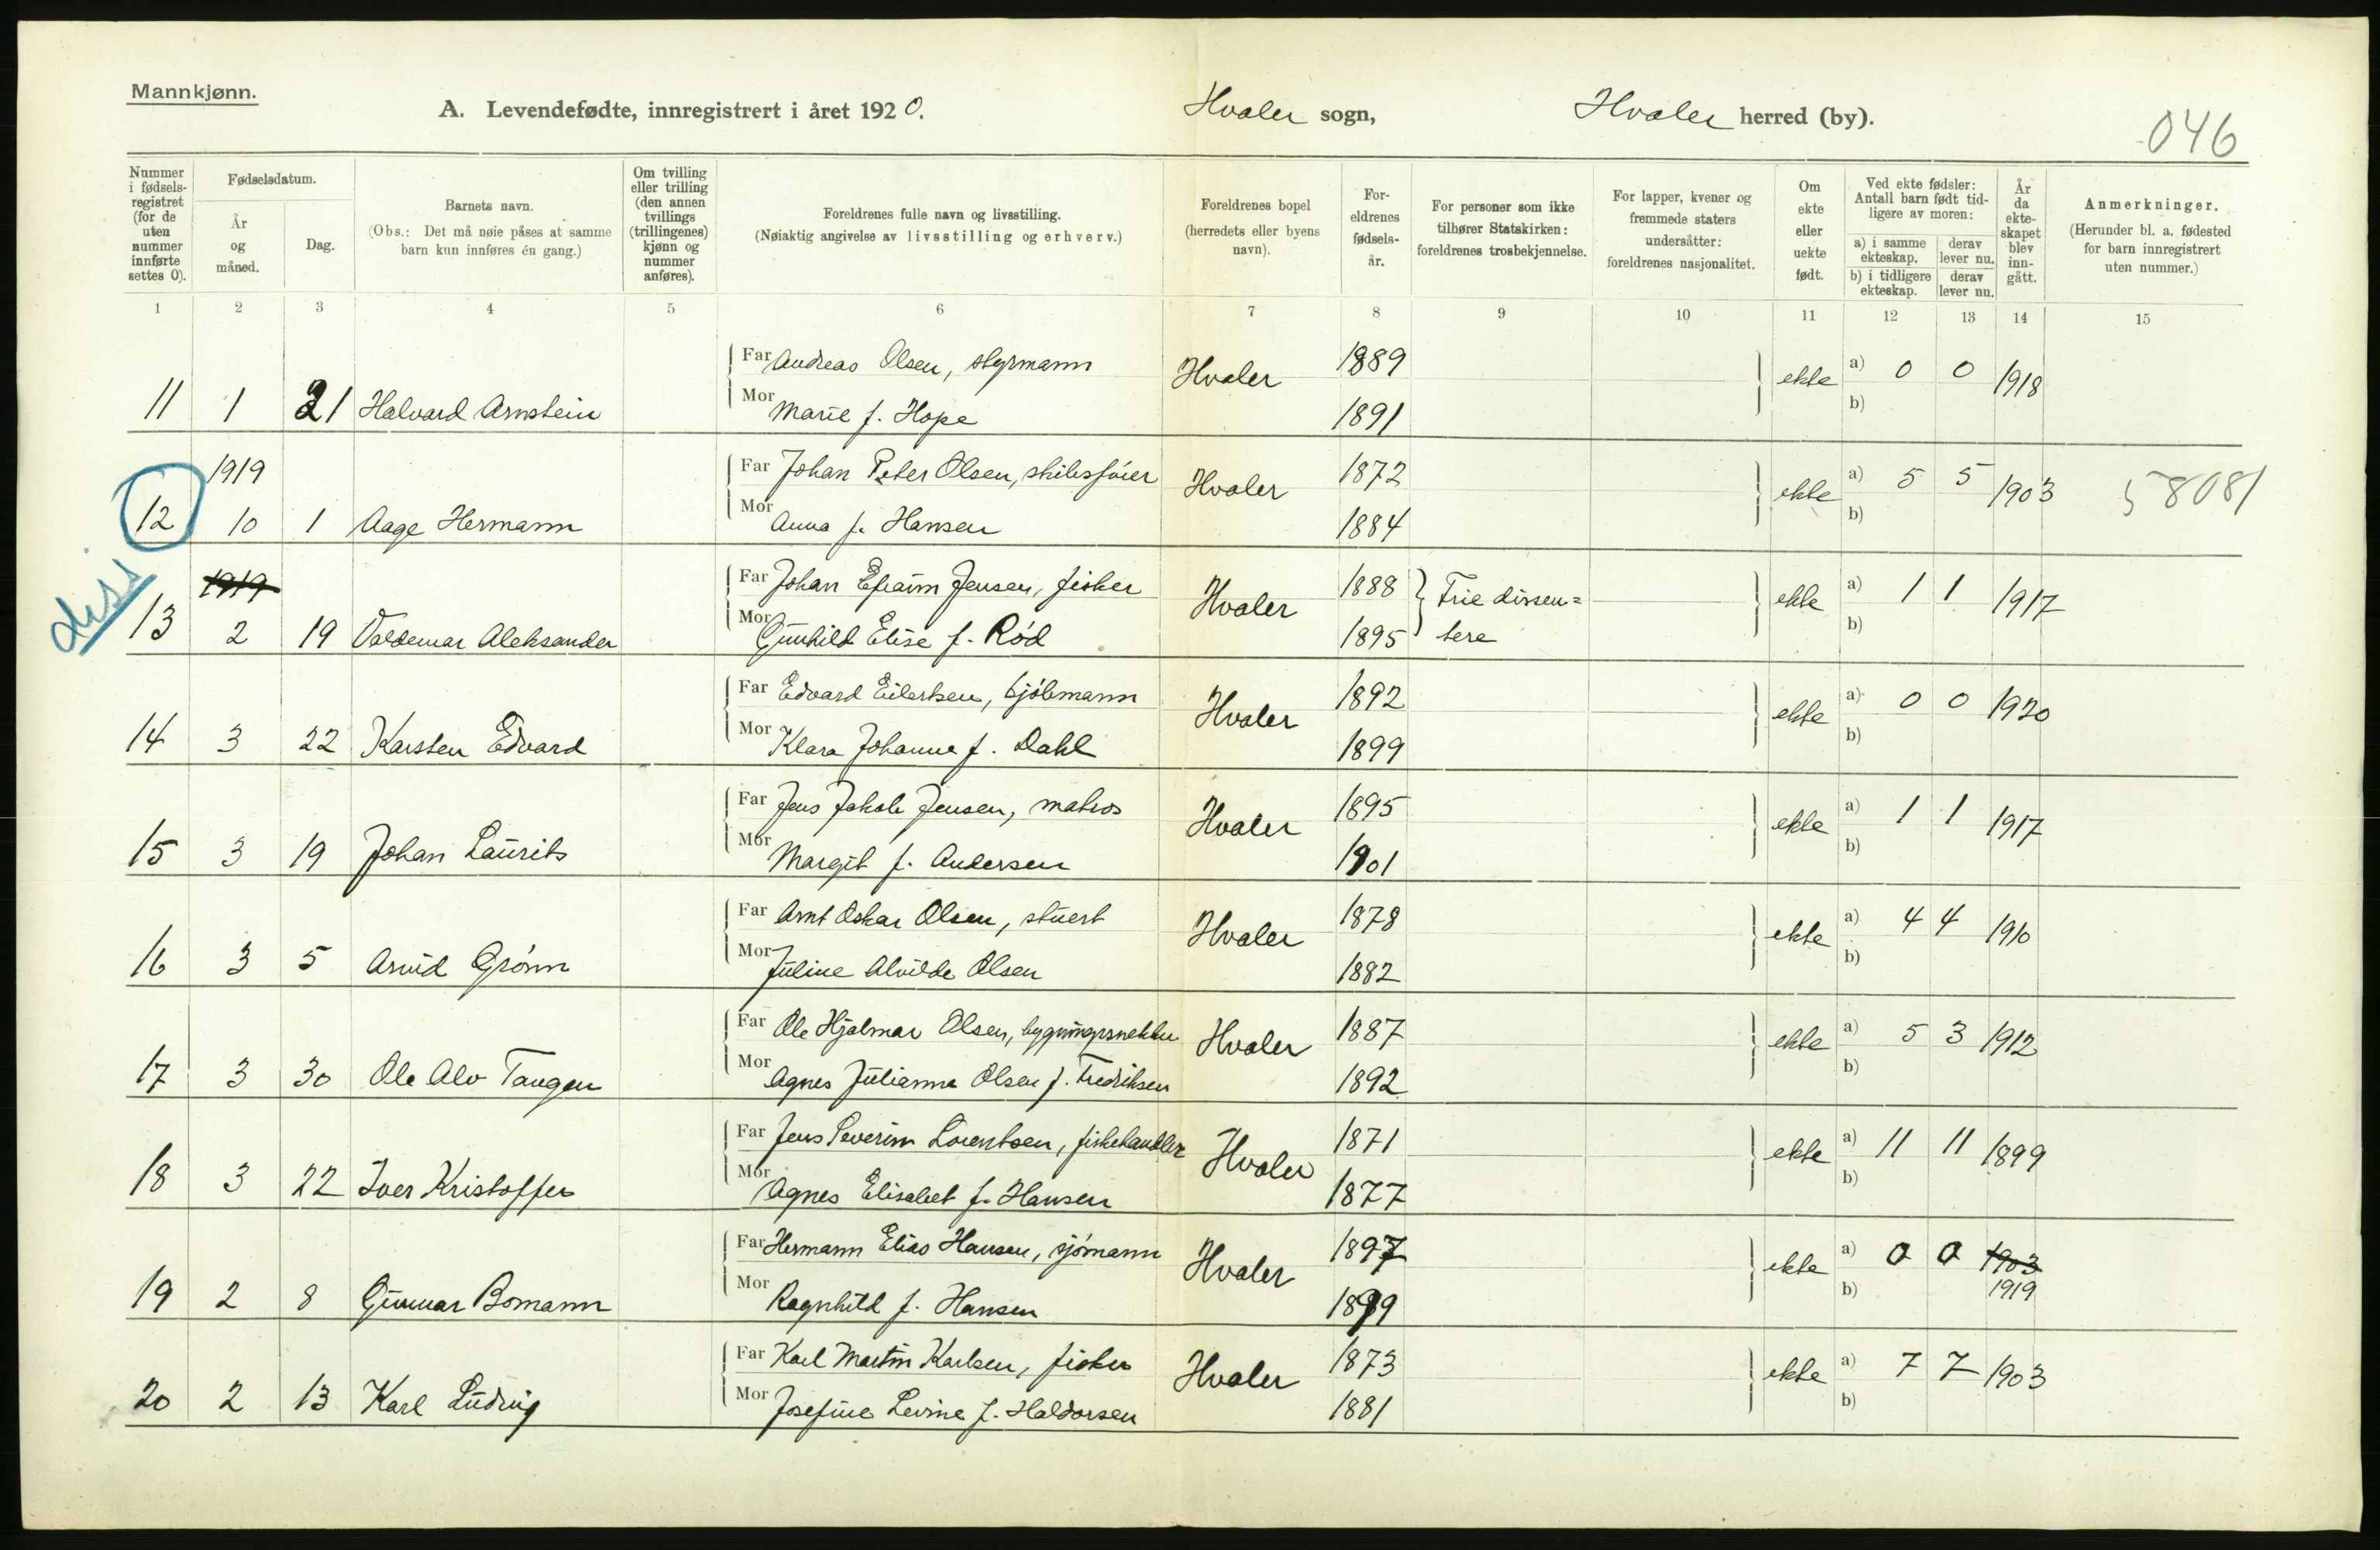 Mannkjønn.
A. Levendefødte, innregistrert i året 1920. Hvaler sogn, Hvaler herred (by).
046
Nummer i fødsels-registret (for de uten nummer innførte settes 0).
Fødselsdatum.
År og måned.
Dag.
Barnets navn.
(Obs.: Det må nøie påses at samme barn kun innføres én gang.)
Om tvilling eller trilling (den annen tvillings (trillingenes) kjønn og nummer anføres).
Foreldrenes fulle navn og livsstilling.
(Nøiaktig angivelse av livsstilling og erhverv.)
Foreldrenes bopel (herredets eller byens navn).
For-eldrenes fødsels-år.
For personer som ikke tilhører Statskirken: foreldrenes trosbekjennelse.
For lapper, kvener og fremmede staters undersåtter: foreldrenes nasjonalitet.
Om ekte eller uekte født.
Ved ekte fødsler: Antall barn født tid-ligere av moren:
a) i samme ekteskap. derav lever nu.
b) i tidligere ekteskap. derav lever nu.
År da ekte-skapet blev inn-gått.
Anmerkninger.
(Herunder bl. a. fødested for barn innregistrert uten nummer.)
1 2 3 4 5 6 7 8 9 10 11 12 13 14 15
Far Andreas Olsen, styrmann Hvaler 1889 ekte a) 0 0 1918
11 1 21 Halvard Arnstein Mor Marie f. Hope 1891 b)
1919 Far Johan Peter Olsen, skibsfører Hvaler 1872 ekte a) 5 5 1903 58081
12 10 1 Aage Hermann Mor Anna f. Hansen 1884 b)
diss
1919 Far Johan Efraim Jensen, fisker Hvaler 1888 Frie dissen= ekte a) 1 1 1917
13 2 19 Valdemar Aleksander Mor Gunhild Elise f. Rød 1895 tere b)
Far Edvard Eilertsen, sjømann Hvaler 1892 ekte a) 0 0 1920
14 3 22 Karsten Edvard Mor Klara Johanne f. Dahl 1899 b)
Far Jens Jakob Jensen, matros Hvaler 1895 ekte a) 1 1 1917
15 3 19 Johan Laurits Mor Margit f. Andersen 1901 b)
Far Arnt Oskar Olsen, stuert Hvaler 1878 ekte a) 4 4 1910
16 3 5 Arvid Grønn Mor Juline Alvilde Olsen 1882 b)
Far Ole Hjalmar Olsen, bygningssnekker Hvaler 1887 ekte a) 5 3 1912
17 3 30 Ole Alv Tangen Mor Agnes Julianne Olsen f. Fredriksen 1892 b)
Far Jens Severin Lorentsen, fiskehandler Hvaler 1871 ekte a) 11 11 1899
18 3 22 Iver Kristoffer Mor Agnes Elisabet f. Hansen 1877 b)
Far Hermann Elias Hansen, sjømann Hvaler 1897 ekte a) 0 0 1903
19 2 8 Gunnar Bomann Mor Ragnhild f. Hansen 1899 b) 1919
Far Karl Martin Karlsen, fisker Hvaler 1873 ekte a) 7 7 1903
20 2 13 Karl Ludvig Mor Josefine Levine f. Haldorsen 1881 b)